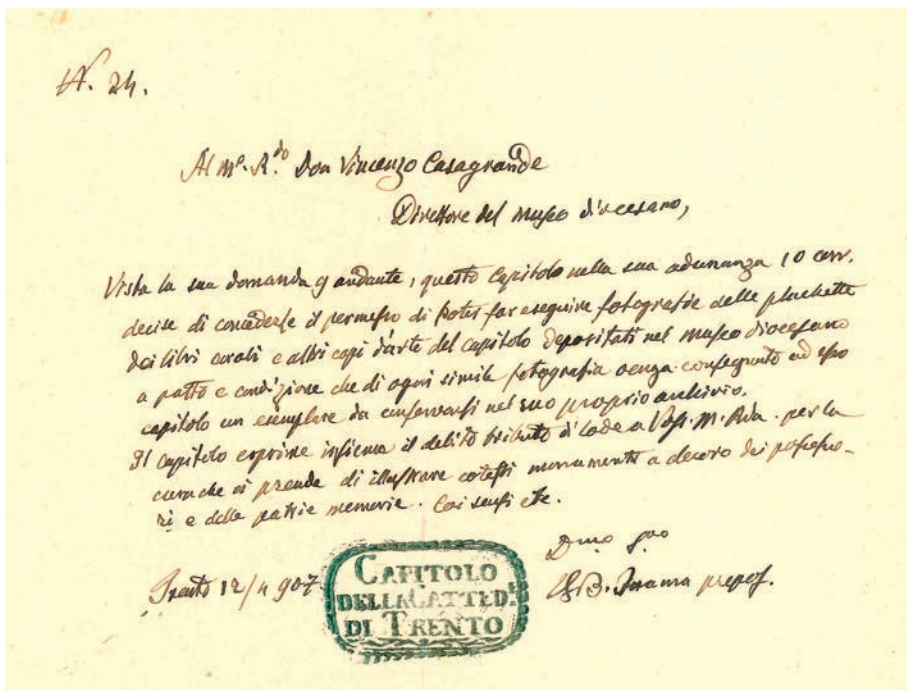 N. 24.
Al M.º R.do Don Vincenzo Casagrande
Direttore del Museo diocesano,
Vista la sua domanda 9 andante, questo Capitolo nella sua adunanza 10 corr.
decise di concederle il permesso di poter far eseguire fotografie delle plachette
dei libri corali e altri capi d'arte del capitolo depositati nel museo diocesano
a patto e condizione che di ogni simile fotografia venga consegnato ad esso
capitolo un esemplare da conservarsi nel suo proprio archivio.
Il capitolo esprime insieme il debito tributo di lode a Vos. M. Rda. per la
cura che si prende di illustrare cotesti monumenti a decoro dei possesso-
ri e delle patrie memorie. Coi sensi etc.
Dmo suo
Trento 12/4 907
G.B. Inama prepos.
CAPITOLO
DELLA CATTED.
DI TRENTO